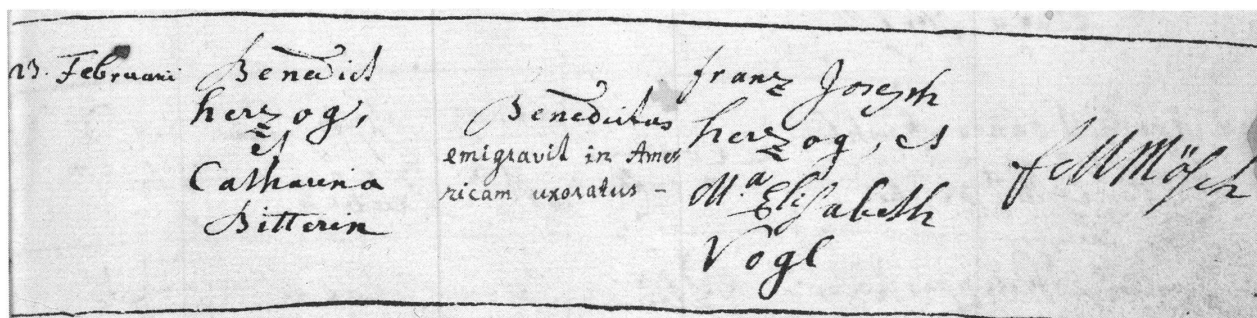 23. Februarii
Benedict
herzog,
et
Catharina
Bitterin
Benedictus
emigravit in Ame=
ricam uxoratus -
franz Joseph
herzog, et
M.a Elisabeth
Vogl